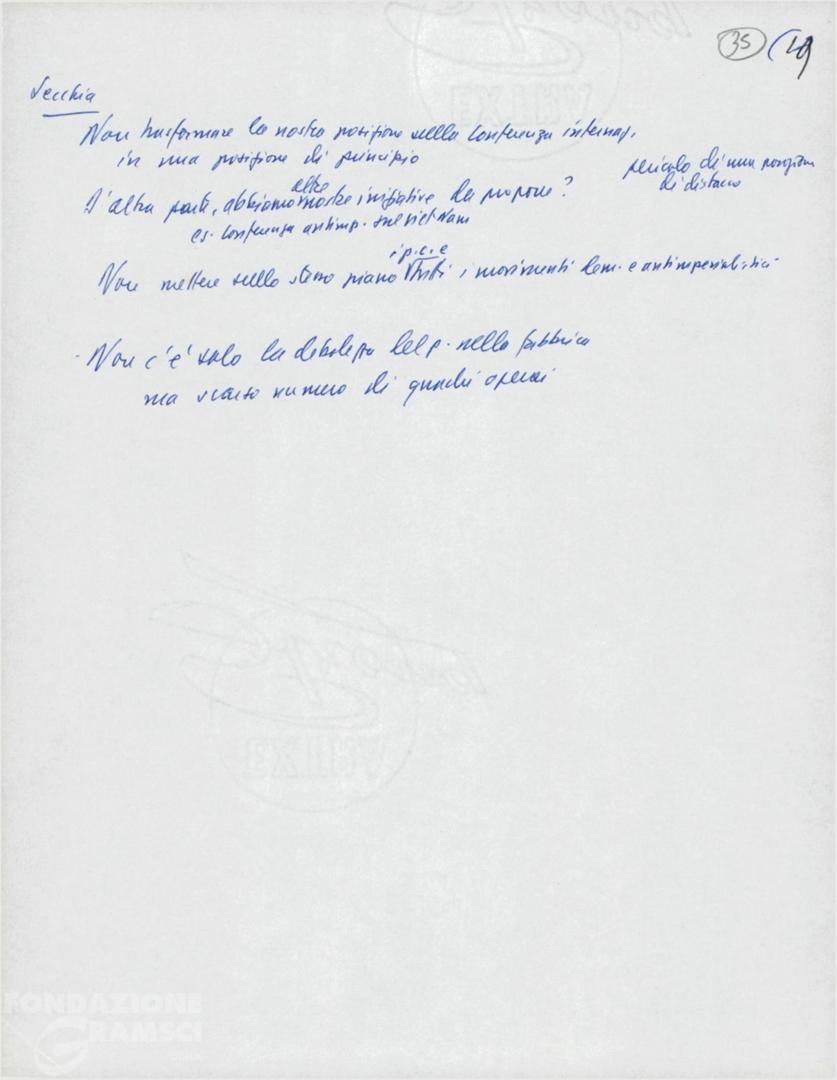 35
19
Secchia
Non trasformare la nostra posizione sulla Conferenza internaz.
in una posizione di principio
pericolo di una posizione
di distacco
D'altra parte, abbiamo nostre iniziative da proporre?
altre
es. Conferenza antimp. sul Viet Nam
i p.c. e
Non mettere sullo stesso piano tutti i movimenti dem. e antimperialistici
Non c'è solo la debolezza del p. nella fabbrica
ma scarso numero di quadri operai
EXTRA
FONDAZIONE
GRAMSCI